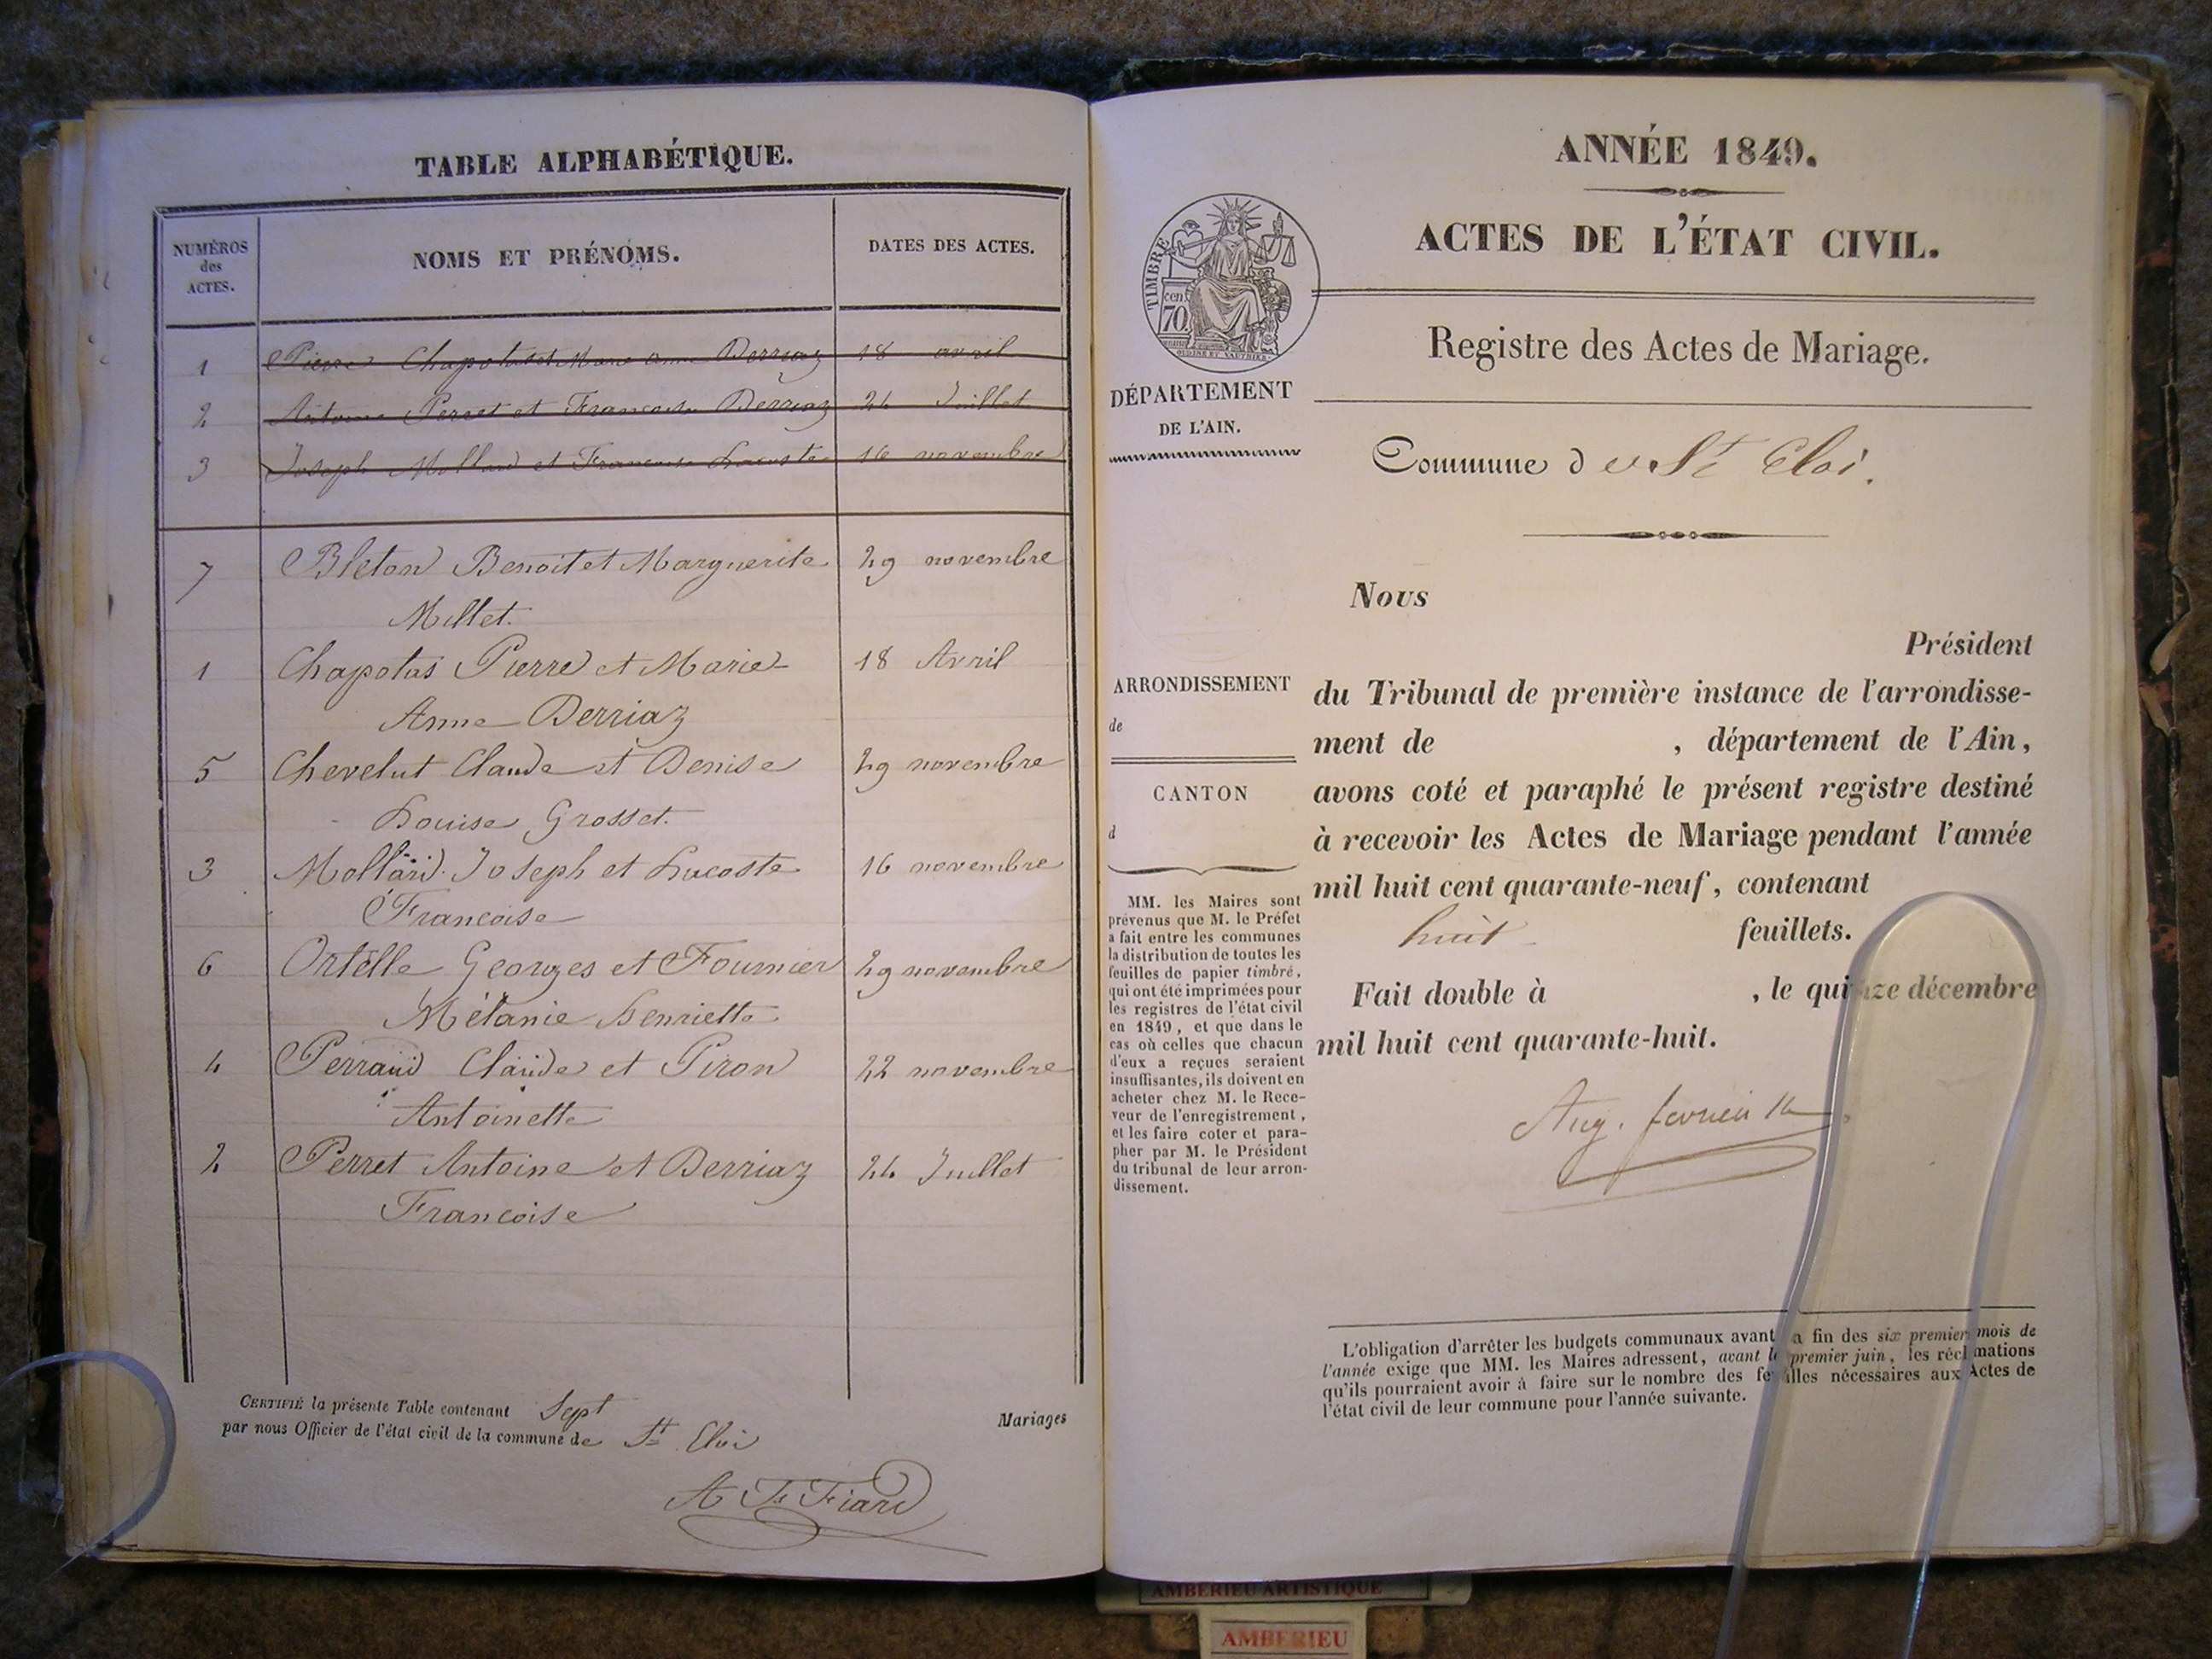 TABLE ALPHABÉTIQUE.
NUMÉROS
des
ACTES.
NOMS ET PRÉNOMS.
DATES DES ACTES.
1 Pierre Chapotas et Marie Anne Derriaz 18 avril
2 Antoine Perret et Francoise Derriaz 24 Juillet
3 Joseph Mollard et Francoise Lacoste 16 novembre
7 Bleton Benoit et Marguerite 29 novembre
Millet.
1 Chapotas Pierre et Marie 18 Avril
Anne Derriaz
5 Chevelut Claude et Denise 29 novembre
Louise Grosset.
3 Mollard Joseph et Lacoste 16 novembre
Francoise
6 Ortelle Georges et Fournier 29 novembre
Mélanie Henriette
4 Perraud Claude et Piron 22 novembre
Antoinette
2 Perret Antoine et Derriaz 24 Juillet
Francoise
CERTIFIÉ la présente Table contenant Sept Mariages
par nous Officier de l'état civil de la commune de St Eloi
A F Fiard
ANNÉE 1849.
ACTES DE L'ÉTAT CIVIL.
TIMBRE
cen.
70
Registre des Actes de Mariage.
DÉPARTEMENT
DE L'AIN.
Commune de St Eloi.
Nous
Président
ARRONDISSEMENT
de
CANTON
d
du Tribunal de première instance de l'arrondisse-
ment de , département de l'Ain,
avons coté et paraphé le présent registre destiné
à recevoir les Actes de Mariage pendant l'année
mil huit cent quarante-neuf, contenant
huit feuillets.
Fait double à , le quinze décembre
mil huit cent quarante-huit.
MM. les Maires sont
prévenus que M. le Préfet
a fait entre les communes
la distribution de toutes les
feuilles de papier timbré,
qui ont été imprimées pour
les registres de l'état civil
en 1849, et que dans le
cas où celles que chacun
d'eux a reçues seraient
insuffisantes, ils doivent en
acheter chez M. le Rece-
veur de l'enregistrement,
et les faire coter et para-
pher par M. le Président
du tribunal de leur arron-
dissement.
Aug.
L'obligation d'arrêter les budgets communaux avant la fin des six premiers mois de
l'année exige que MM. les Maires adressent, avant le premier juin, les réclamations
qu'ils pourraient avoir à faire sur le nombre des feuilles nécessaires aux Actes de
l'état civil de leur commune pour l'année suivante.
AMBERIEU ARTISTIQUE
AMBERIEU